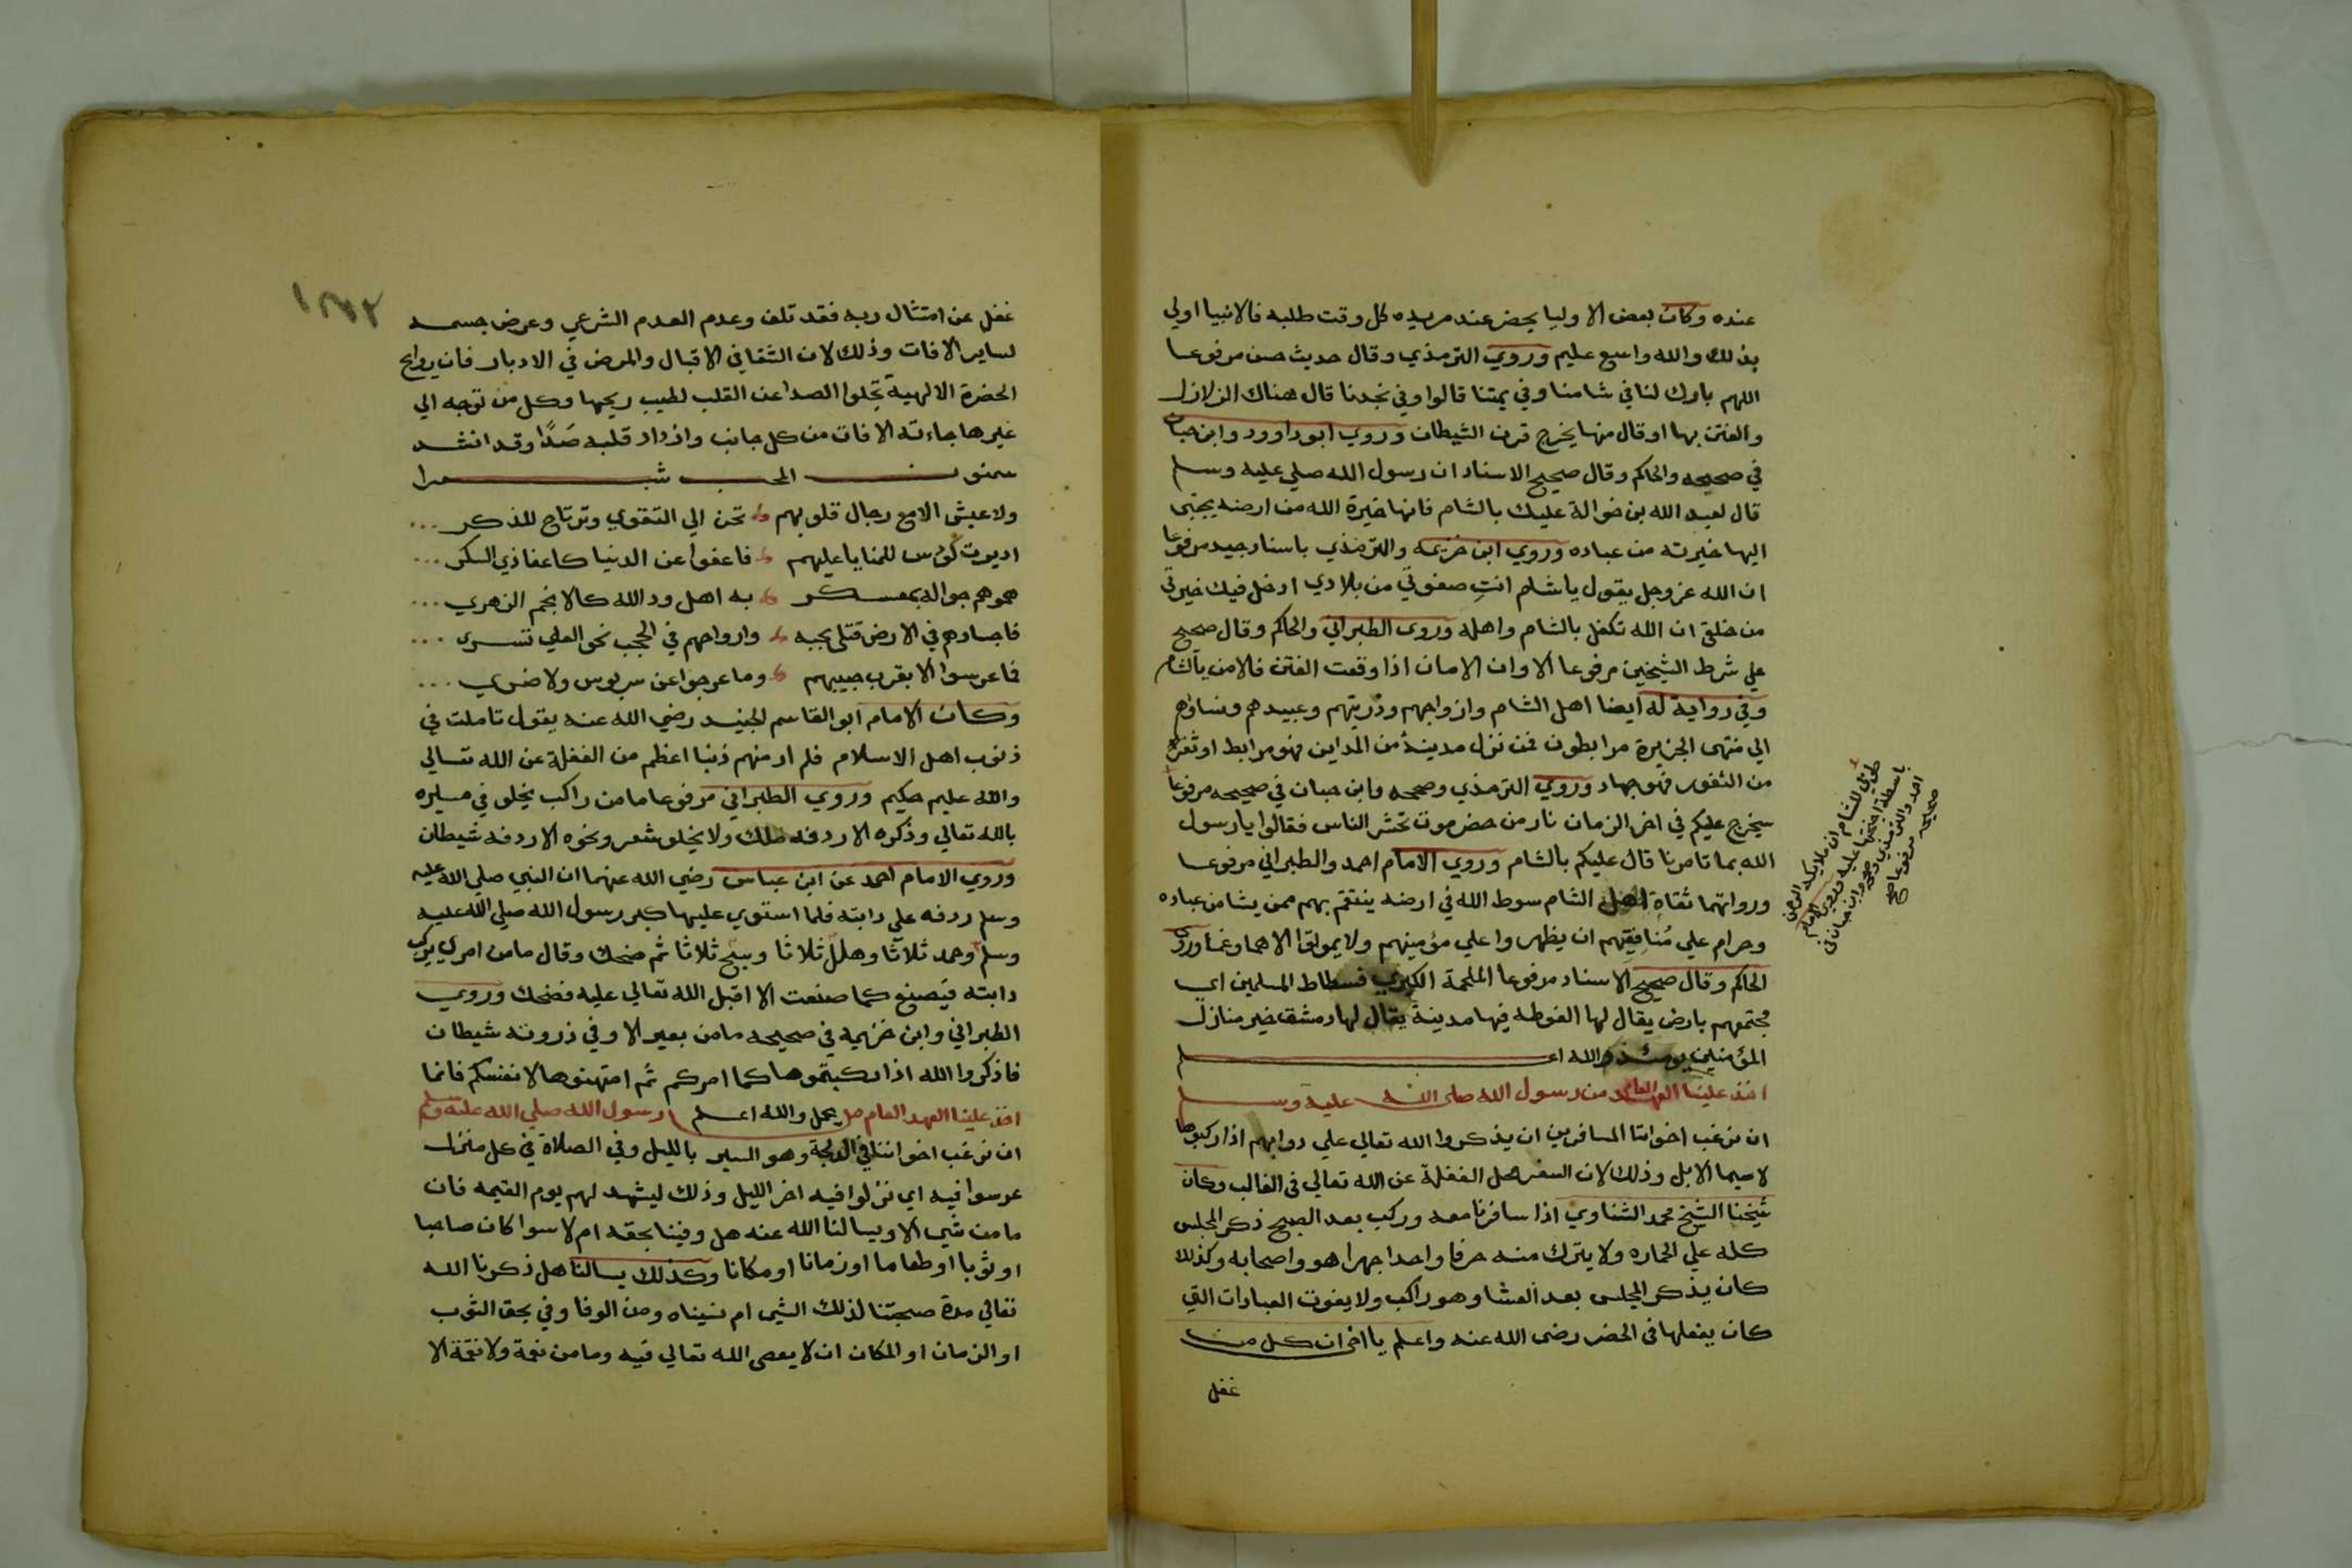 عنده وكان بعض الاوليا يحضر عند مريده كل وقت طلبه فالانبيا اولي
بذلك والله واسع عليم وروي الترمذي وقال حديث حسن مرفوعا
اللهم بارك لنا في شامنا وفي يمننا قالوا وفي نجدنا قال هناك الزلازل
والفتن بها او قال منها يخرج قرن الشيطان وروي ابو داوود وابن حبان
في صحيحه والحاكم وقال صحيح الاسناد ان رسول الله صلي عليه وسلم
قال لعبد الله بن خوالة عليك بالشام فانها خيرة الله من ارضه يجتبى
اليها خيرته من عباده وروي ابن خزيمه والترمذي باسناد جيد مرفوعا
ان الله عز وجل يقول يا شام انتِ صفوتي من بلادي ادخل فيك خيرتي
من خلقي ان الله تكفل بالشام واهله وروى الطبراني والحاكم وقال صحيح
علي شرط الشيخين مرفوعا الا وان الامان اذا وقعت الفتن فالامن بالشام
وفي رواية له ايضا اهل الشام وازواجهم وذريتهم وعبيدهم ونساؤهم
الي منتهى الجزيرة مرابطون فمن نزل مدينة من المداين فهو مرابط او ثغرة
من الثغور فهو جهاد وروي الترمذي وصححه وابن حبان في صحيحه مرفوعا
سيخرج عليكم في اخر الزمان نار من حضرموت تحشر الناس فقالوا يا رسول
الله بما تامرنا قال عليكم بالشام وروي الامام احمد والطبراني مرفوعا
ورواتهما ثقاة اهل الشام سوط الله في ارضه ينتقم بهم ممن يشا من عباده
وحرام علي مُنافِقِهم ان يظهروا علي مؤمنهم ولا يموتوا الا هما وغما وروى
الحاكم وقال صحيح الاسناد مرفوعا الملحمة الكبري فسطاط المسلمين اي
مجتمعهم بارض يقال لها الغوطه فيها مدينة يقال لها دمشق خير منازل
المؤمنين يومئذ والله اعلم
اخذ علينا العهد العام من رسول الله صلى الله عليه وسلم
ان نرغب اخواننا المسافرين ان يذكروا الله تعالي علي دوابهم اذا ركبوها
لا سيما الابل وذلك لان السفر محل الغفلة عن الله تعالي في الغالب وكان
شيخنا الشيخ محمد الشناوي اذا سافرنا معه وركب بعد الصبح ذكر المجلس
كله علي الحماره ولا يترك منه حرفا واحدا جهرا هو واصحابه وكذلك
كان يذكر المجلس بعد العشا وهو راكب ولا يفوت العبادات التي
كان يفعلها في الحضر رضى الله عنه واعلم يا اخي ان كل من
غفل
طوبى للشام ان ملايكة الرحمن
باسطة اجنحتها عليه وروي الامام
احمد والترمذي وصححه وابن حبان في
صحيحه مرفوعا صح
غفل عن امتثال ربه فقد تلف وعدم العدم الشرعي وعرض جسمه
لساير الافات وذلك لان الشفا في الاقبال والمرض في الادبار فان روايح
الحضرة الالهية تجلوا الصدا عن القلب لطيب ريحها وكل من توجه الي
غيرها جاءته الافات من كل جانب وازداد قلبه صَدًا وقد انشد
سمنون المحب شعرا
ولا عيش الا مع رجال قلوبهم تحن الي التقوي وترتاح للذكر
اديرت كؤس للمنايا عليهم فاعفوا عن الدنيا كاعفا ذي السكر
همومهم جوالة بمعسكر به اهل ود الله كالانجم الزهري
فاجسادهم في الارض قتلى بحبه وارواحهم في الحجب نحو العلي تسرى
فما عرسوا الا بقرب حبيبهم وما عرجوا عن مس بوس ولا ضري
وكان الامام ابو القاسم الجنيد رضي الله عنه يقول تاملت في
ذنوب اهل الاسلام فلم ار منهم ذنبا اعظم من الغفلة عن الله تعالي
والله عليم حكيم وروي الطبراني مرفوعا ما من راكب يخلو في مسيره
بالله تعالي وذكره الا ردفه ملك ولا يخلو بشعر ونحوه الا ردفه شيطان
وروي الامام احمد عن ابن عباس رضي الله عنهما ان النبي صلي الله عليه
وسلم ردفه علي دابته فلما استوي عليها كبر رسول الله صلي الله عليه
وسلم وحمد ثلاثا وهلل ثلاثا وسبح ثلاثا ثم ضحك وقال ما من امري يركب
دابته فيصنع كما صنعت الا اقبل الله تعالي عليه فضحك وروي
الطبراني وابن خزيمه في صحيحه ما من بعير الا وفي ذروته شيطان
فاذكروا الله اذا ركبتموها كما امركم ثم امتهنوها لانفسكم فانما
يحمل والله اعلم
اخذ علينا العهد العام من رسول الله صلي الله عليه وسلم
ان نرغب اخواننا في الدلجة وهو السير بالليل وفي الصلاة في كل منزل
عرسوا فيه اي نزلوا فيه اخر الليل وذلك ليشهد لهم يوم القيمه فان
ما من شي الا ويسالنا الله عنه هل وفينا بحقه ام لا سوا كان صاحبا
او ثوبا او طعاما او زمانا او مكانا وكذلك يسالنا هل ذكرنا الله
تعالي مدة صحبتنا لذلك الشي ام نسيناه ومن الوفا وفي بحق الثوب
او الزمان او المكان ان لا يعصى الله تعالي فيه وما من نعمة ولا نقمة الا